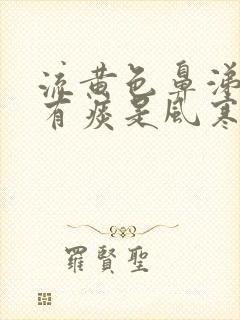 流黄色鼻涕
有痰是風寒
羅賢聖